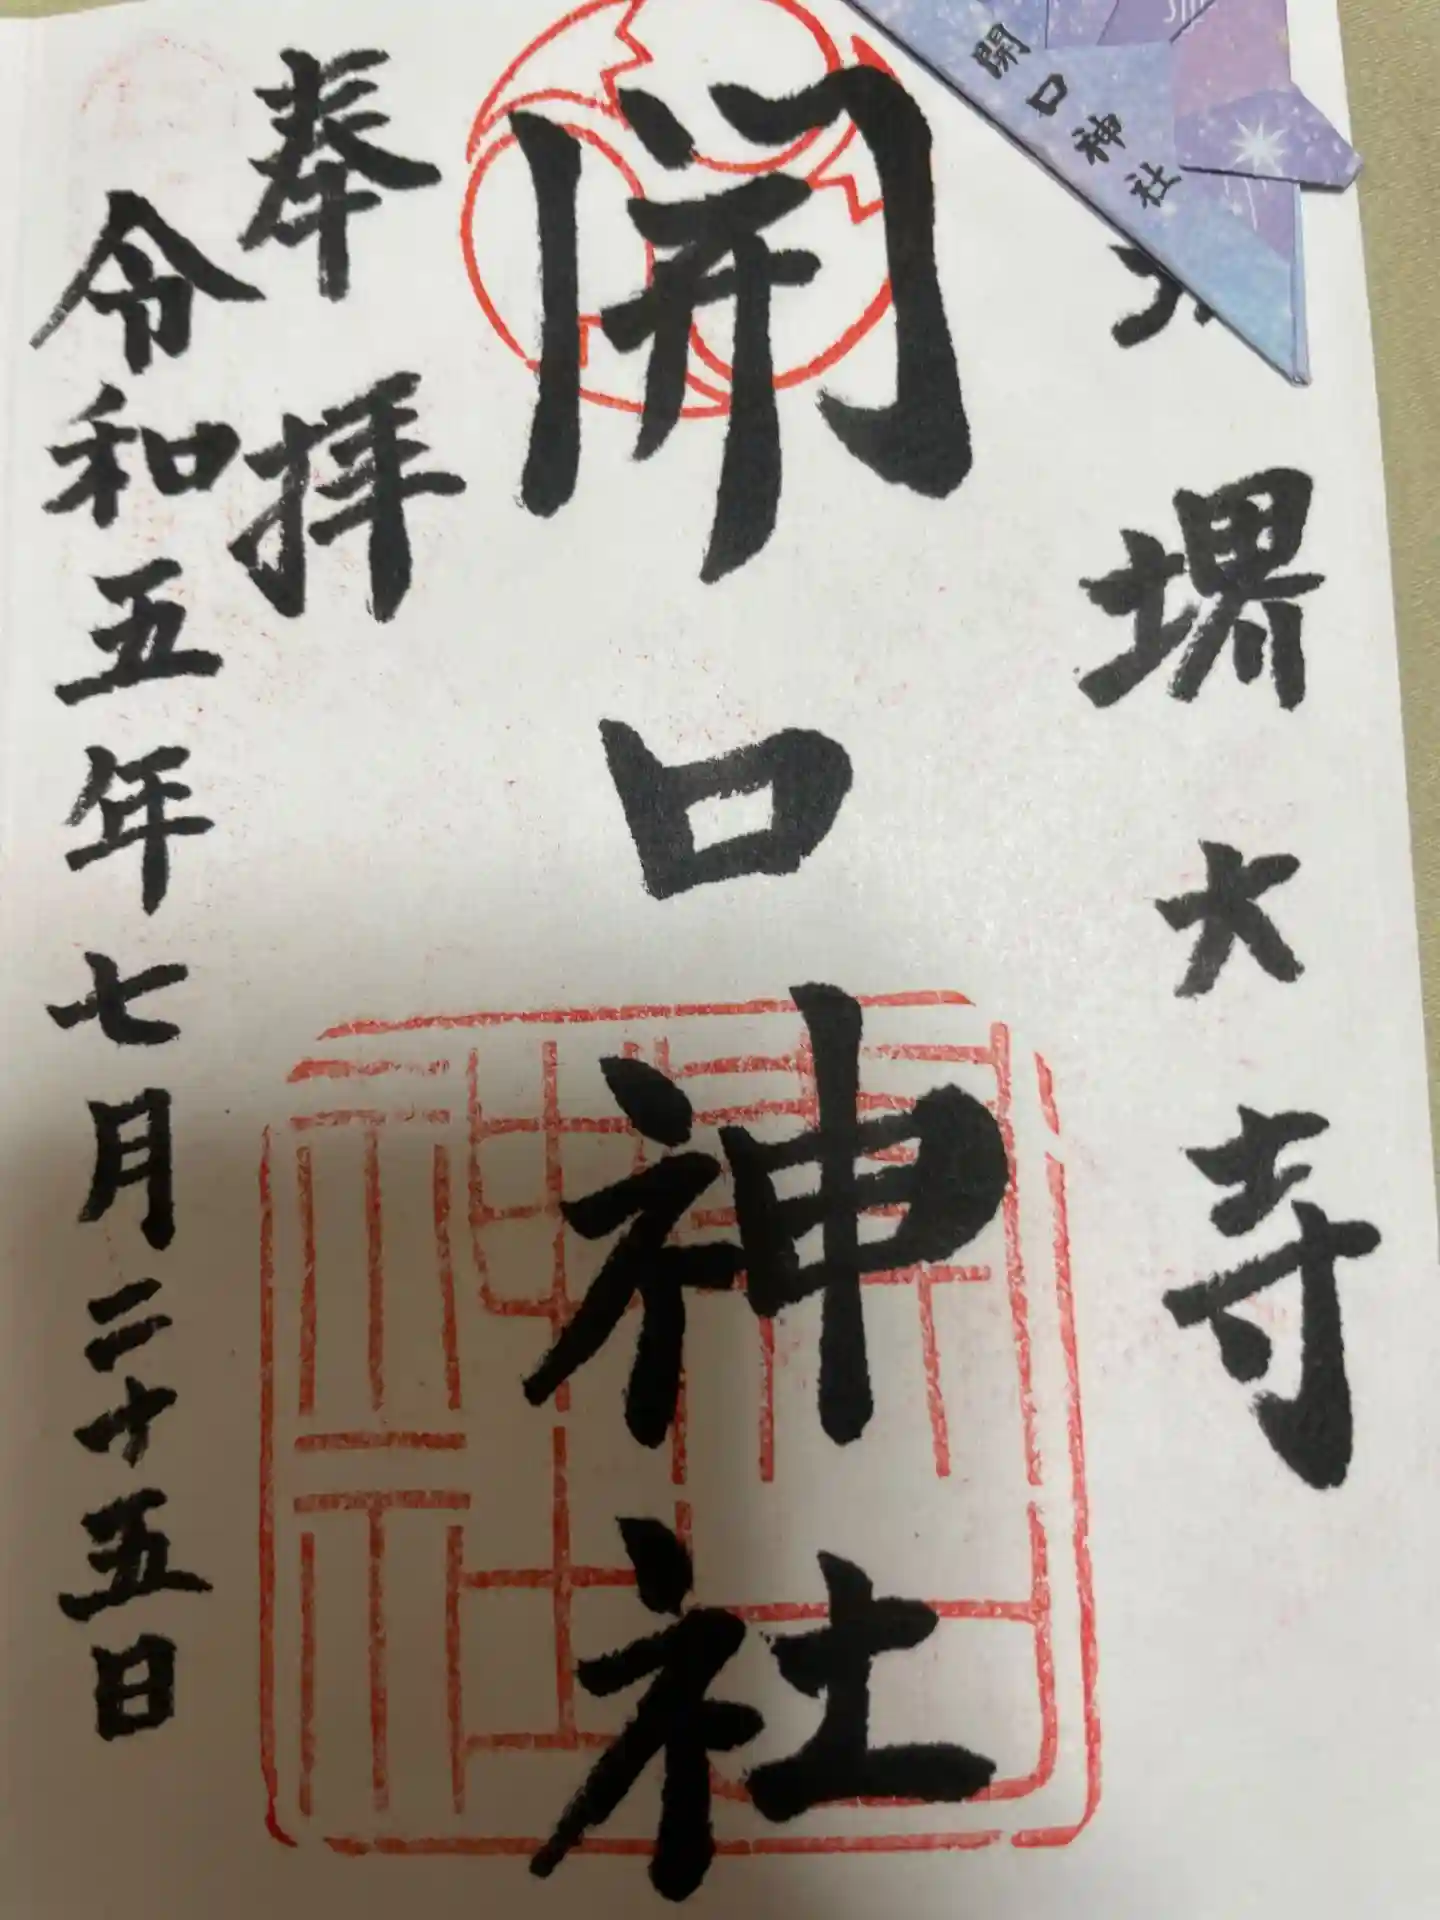 開口神社
堺大寺
開口神社
奉拝
令和五年七月二十五日
開口神社